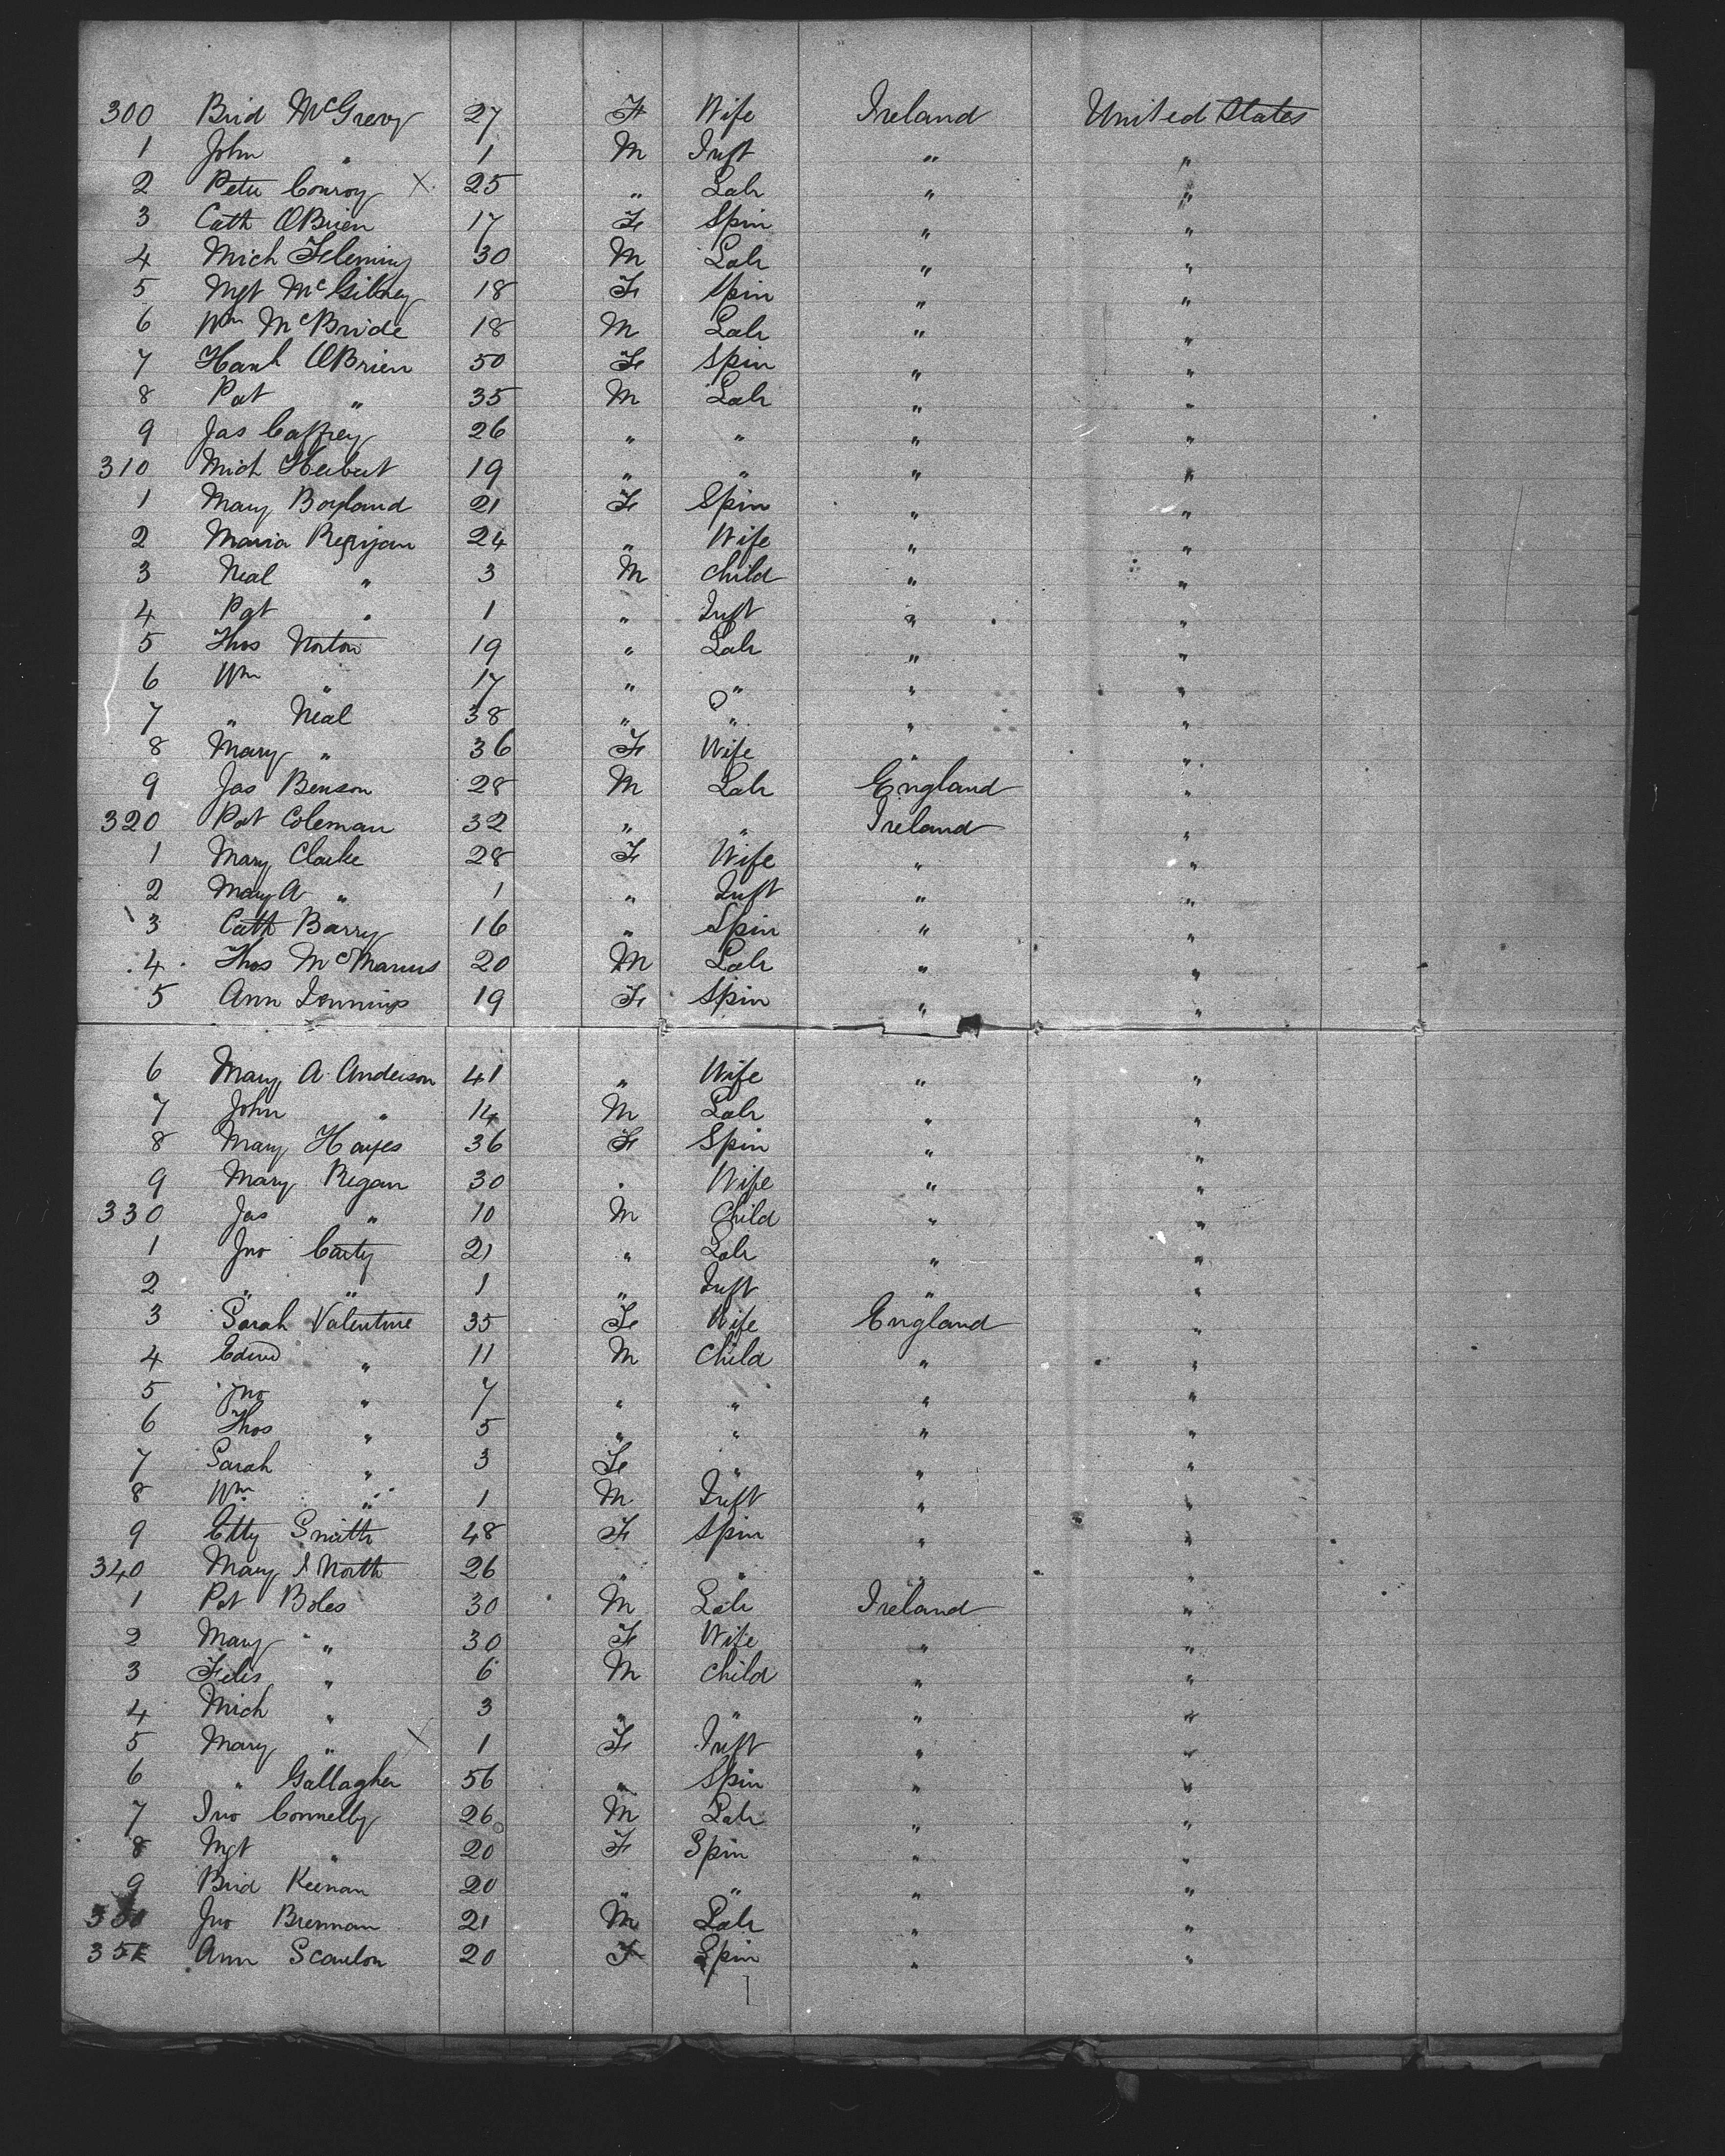 300 Brid McGrevy 27 F Wife Ireland United States
1 John " 1 M Inft " "
2 Peter Conroy X 25 " Labr " "
3 Cath OBrien 17 F Spin " "
4 Mich Fleming 30 M Labr " "
5 Mgt McGibney 18 F Spin " "
6 Wm McBride 18 M Labr " "
7 Hanh OBrien 50 F Spin " "
8 Pat " 35 M Labr " "
9 Jas Caffrey 26 " " " "
310 Mich Herbert 19 " " " "
1 Mary Boyland 21 F Spin " "
2 Maria 24 " Wife " "
3 Neal " 3 M Child " "
4 Pat " 1 " Inft " "
5 Thos Norton 19 " Labr " "
6 Wm " 17 " " " "
7 " Neal 38 " " " "
8 Mary " 36 F Wife " "
9 Jas Benson 28 M Labr England "
320 Pat Coleman 32 " " Ireland "
1 Mary Clarke 28 F Wife " "
2 Mary A " 1 " Inft " "
3 Cath Barry 16 " Spin " "
4 Thos McManus 20 M Labr " "
5 Ann Jennings 19 F Spin " "
6 Mary A Anderson 41 " Wife " "
7 John " 14 M Labr " "
8 Mary Hayes 36 F Spin " "
9 Mary Regan 30 " Wife " "
330 Jas " 10 M Child " "
1 Jno Carty 21 " Labr " "
2 " " 1 " Inft " "
3 Sarah Valentine 35 F Wife England "
4 Edwd " 11 M Child " "
5 Jno " 7 " " " "
6 Thos " 5 " " " "
7 Sarah " 3 F " " "
8 Wm " 1 M Inft " "
9 Etty Smith 48 F Spin " "
340 Mary North 26 " " " "
1 Pat Boles 30 M Labr Ireland "
2 Mary " 30 F Wife " "
3 Felis " 6 M Child " "
4 Mich " 3 " " " "
5 Mary " X 1 F Inft " "
6 " Gallagher 56 " Spin " "
7 Jno Connelly 26 M Labr " "
8 Mgt " 20 F Spin " "
9 Brid Keenan 20 " " " "
Jno Brennan 21 M Labr " "
Ann Scanlon 20 F Spin " "